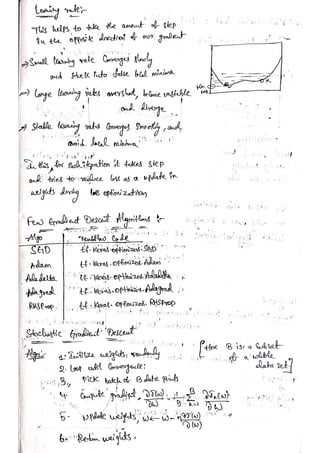 Learning rate:-
This helps to take the amount of step
in the opposite direction of our gradient
→ Small learning rate Converges slowly
and stuck into false local minima
→ Large learning rates overshoot, become unstable
and diverge
→ Stable learning rate Converges Smoothly, and
avoid local minima
In this, for each iteration it takes step
and tries to reduce loss as a update in
weights during loss optimization
Few Gradient Descent Algorithms :-
Algo Tensorflow Code
SGD tf.keras.optimizers.SGD
Adam tf.keras.optimizers.Adam
Adadelta tf.keras.optimizers.Adadelta
Adagrad tf.keras.optimizers.Adagrad
RMSProp tf.keras.optimizers.RMSProp
Stochastic Gradient Descent
Algo:- 1. Initialize weights, randomly
[Here B is a Subset
of a whole
data set]
2. Loop until Convergence:
3. Pick batch of B data points
4. Compute gradient, ∂J(w)/∂w = 1/B Σ k=1 B ∂Jk(w)/∂w
5. Update weights, w ← w - η ∂J(w)/∂(w)
6. Return weights.